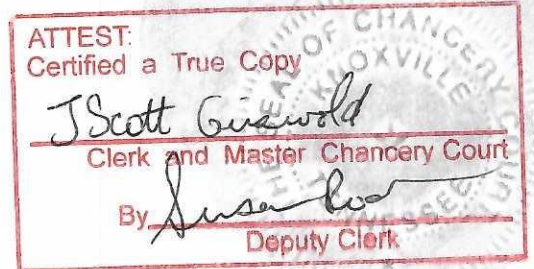 ATTEST:
Certified a True Copy
J Scott Griswold
Clerk and Master Chancery Court
By Susan
Deputy Clerk
SEAL OF CHANCERY
KNOXVILLE
TENNESSEE